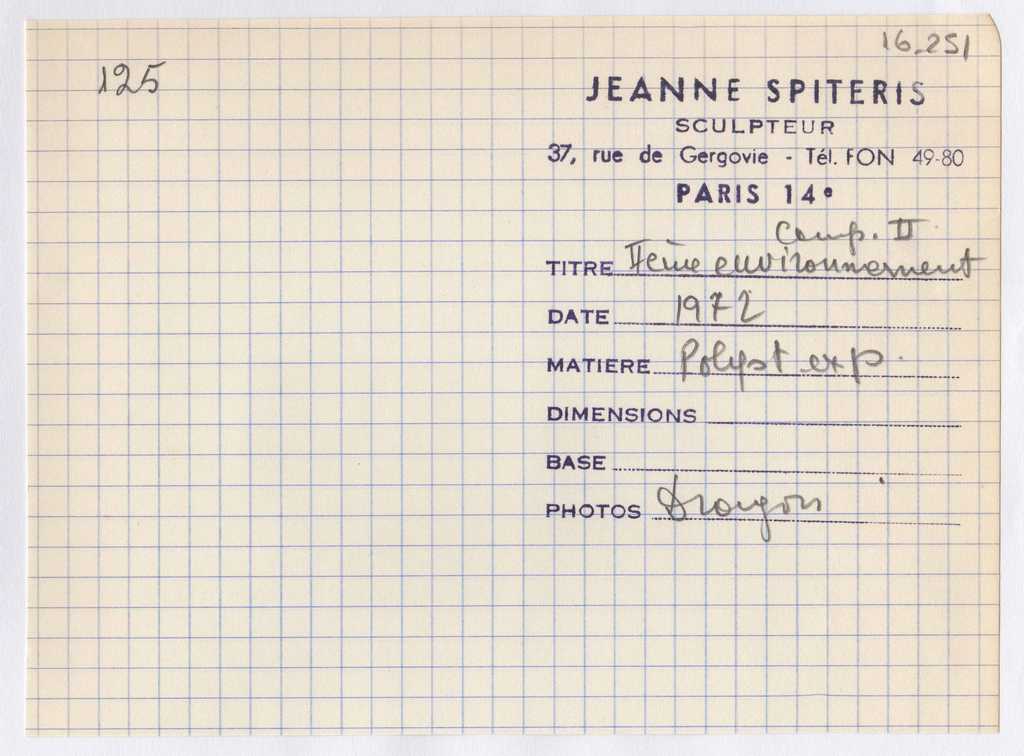 16.251
125
JEANNE SPITERIS
SCULPTEUR
37, rue de Gergovie - Tél. FON 49-80
PARIS 14e
Comp. II
TITRE IIème environnement
DATE 1972
MATIERE Polyst exp.
DIMENSIONS
BASE
PHOTOS